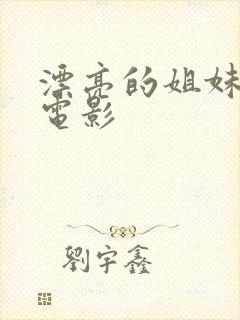 漂亮的姐妹
電影
劉宇鑫